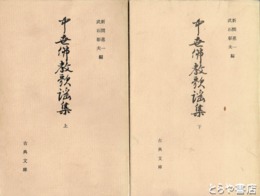 新間進一
武石彰夫 編
中世佛教歌謡集
上
古典文庫
新間進一
武石彰夫 編
中世佛教歌謡集
下
古典文庫
とらや書房